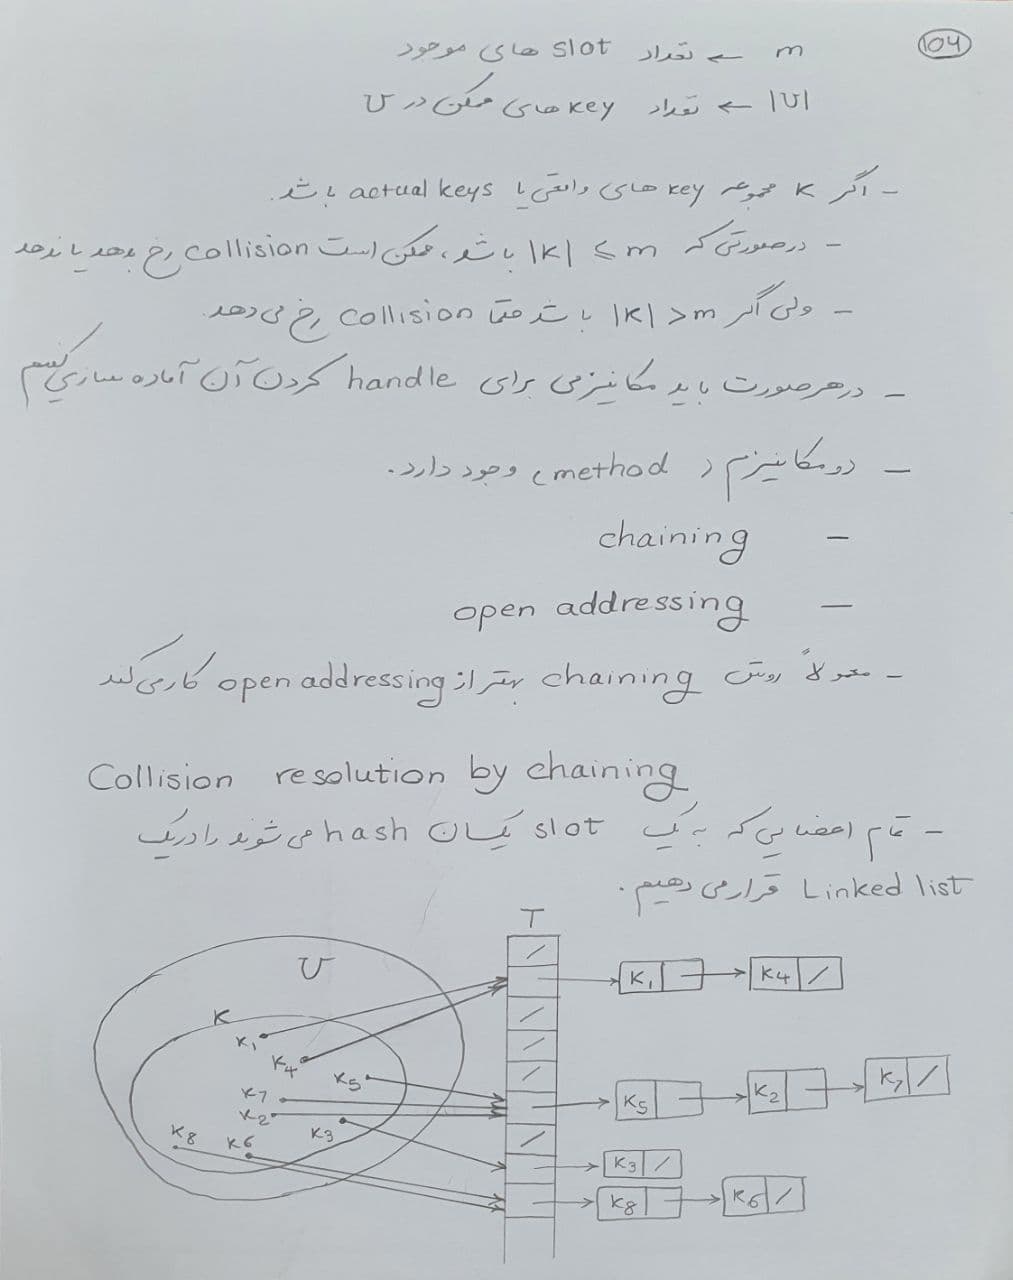 ۱۰۴
m ← تعداد slot های موجود
|U| ← تعداد key های ممکن در U
- اگر K مجموعه key های واقعی یا actual keys باشد.
- در صورتی که |K| ≤ m باشد، ممکن است collision رخ بدهد یا ندهد
- ولی اگر |K| > m باشد حتماً collision رخ می دهد.
- در هر صورت باید مکانیزمی برای handle کردن آن آماده سازی کنیم
- دو مکانیزم (method) وجود دارد.
- chaining
- open addressing
- معمولاً روش chaining بهتر از open addressing کار می کند
Collision resolution by chaining
- تمام اعضایی که به یک slot یکسان hash می شوند را در یک
Linked list قرار می دهیم.
T
U
K
K1
K4
K5
K7
K2
K3
K8
K6
K1 K4
K5 K2 K7
K3
K8 K6